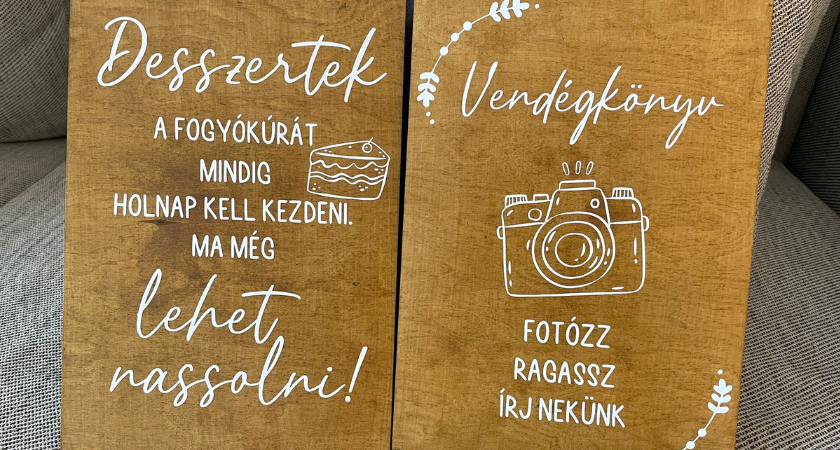 Desszertek
A FOGYÓKÚRÁT
MINDIG
HOLNAP KELL KEZDENI.
MA MÉG
lehet
nassolni!
Vendégkönyv
FOTÓZZ
RAGASSZ
ÍRJ NEKÜNK